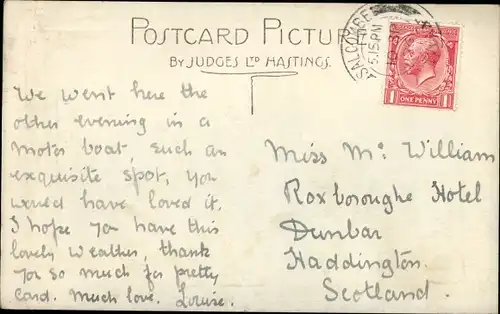 POSTCARD PICTU
BY JUDGES LTD HASTINGS.
SALCOMBE
5.15 PM
ONE PENNY
We went here the
other evening in a
motor boat, such an
exquisite spot, you
would have loved it.
I hope you have this
lovely weather, thank
you so much for pretty
card. Much love. Louise.
Miss Mc William
Roxboroughe Hotel
Dunbar
Haddington.
Scotland.